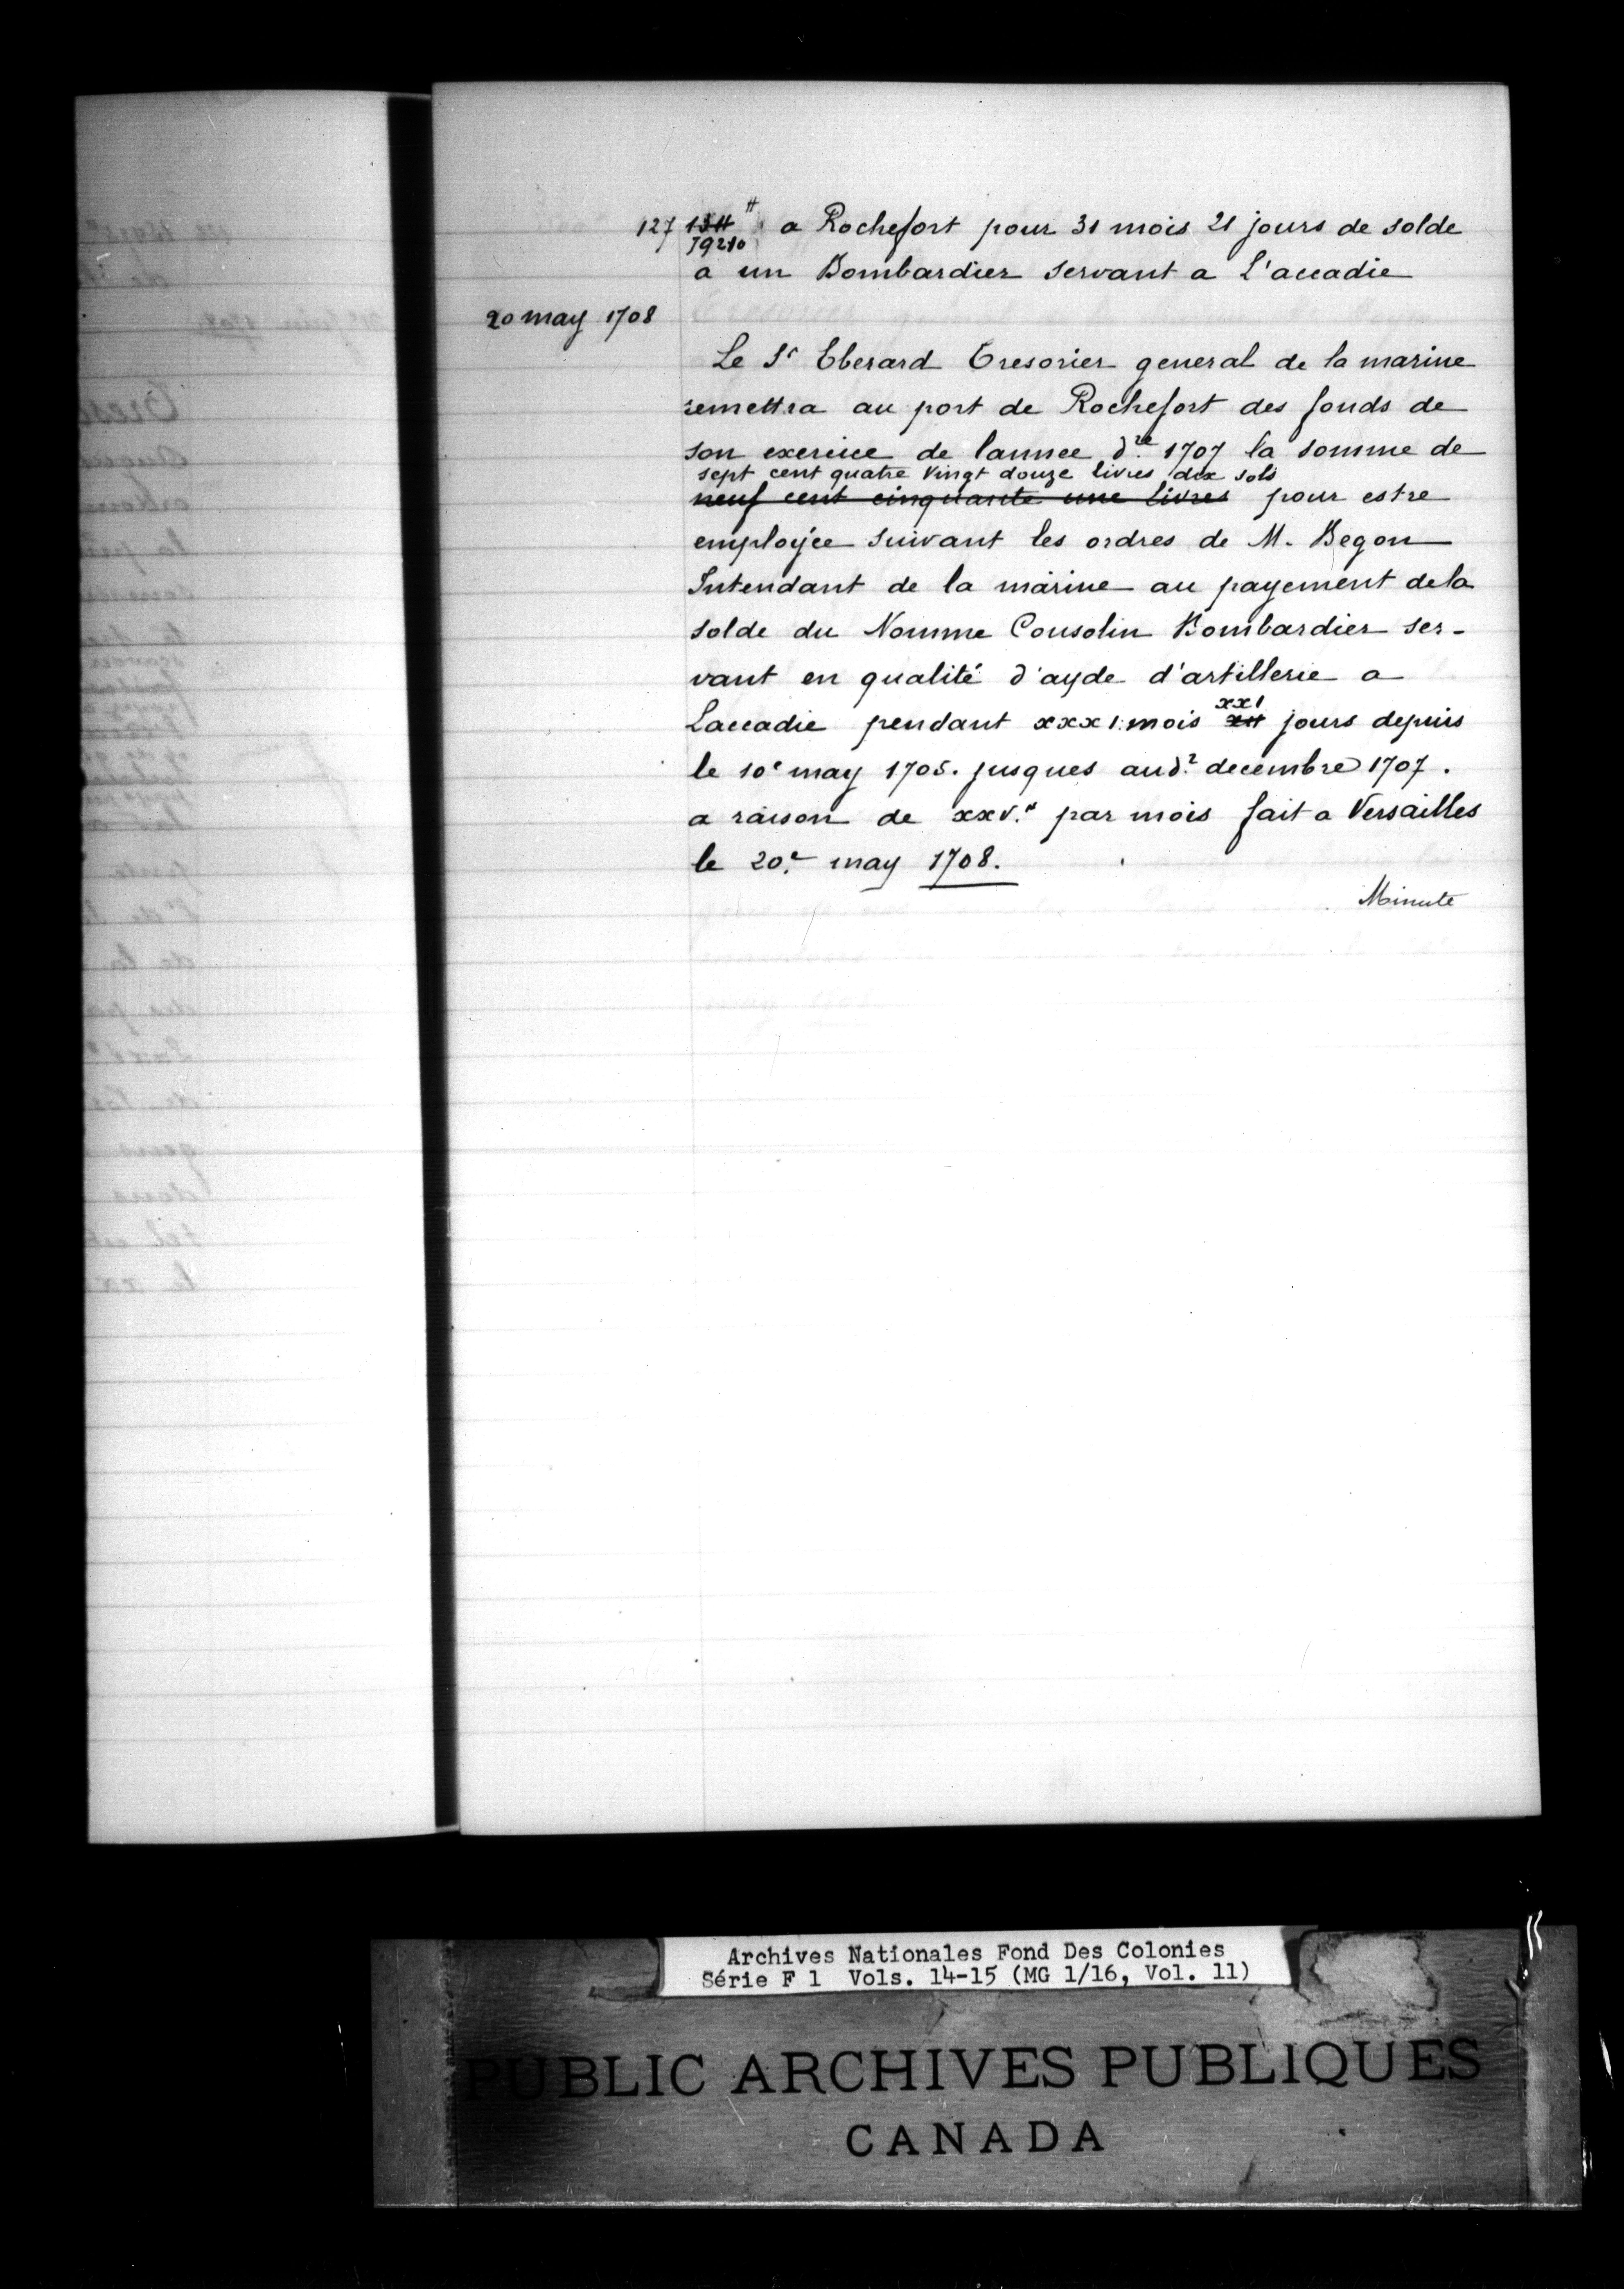 127 a Rochefort pour 31 mois 21 jours de solde
79210
a un Bombardier servant a L'accadie
20 may 1708
Le Sr Eberard Tresorier general de la marine
remettra au port de Rochefort des fonds de
son exercice de lannee dre 1707 la somme de
sept cent quatre vingt douze livres dix sols
neuf cent cinquante une livres pour estre
employée suivant les ordres de M. Begon
Intendant de la marine au payement dela
solde du Nomme Cousolin Bombardier ser-
vant en qualité d'ayde d'artillerie a
xxi
Laccadie pendant xxxi mois xii jours depuis
le 10e may 1705. jusques aud.t decembre 1707.
a raison de xxv.tt par mois fait a Versailles
le 20.e may 1708.
Minute
Archives Nationales Fond Des Colonies
Série F 1 Vols. 14-15 (MG 1/16, Vol. 11)
PUBLIC ARCHIVES PUBLIQUES
CANADA